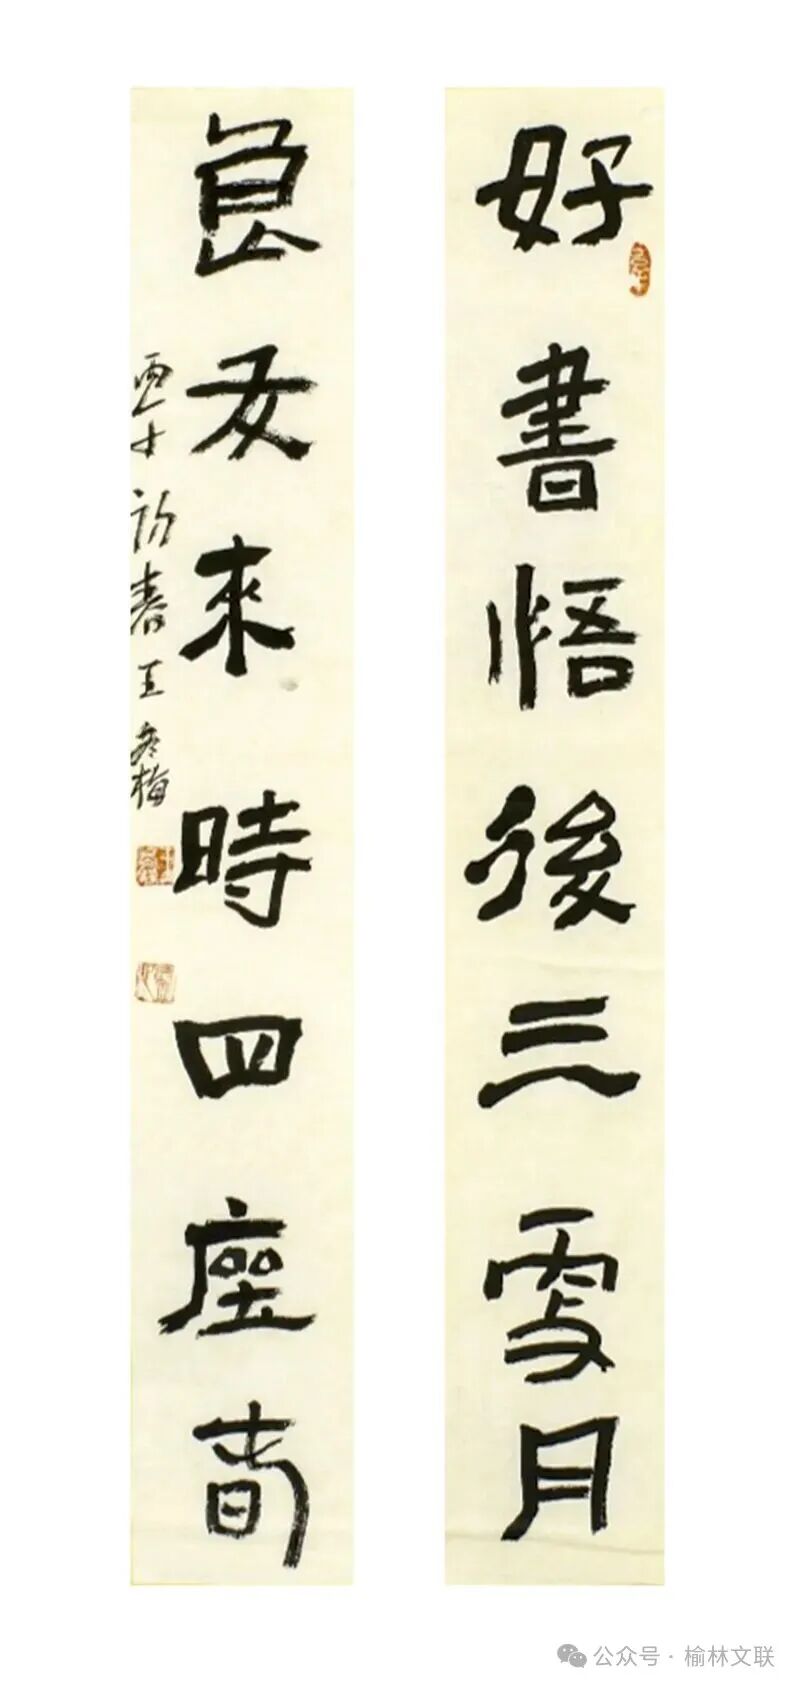 好書悟後三更月
良友來時四座春
丙午初春王冬梅
公众号·榆林文联